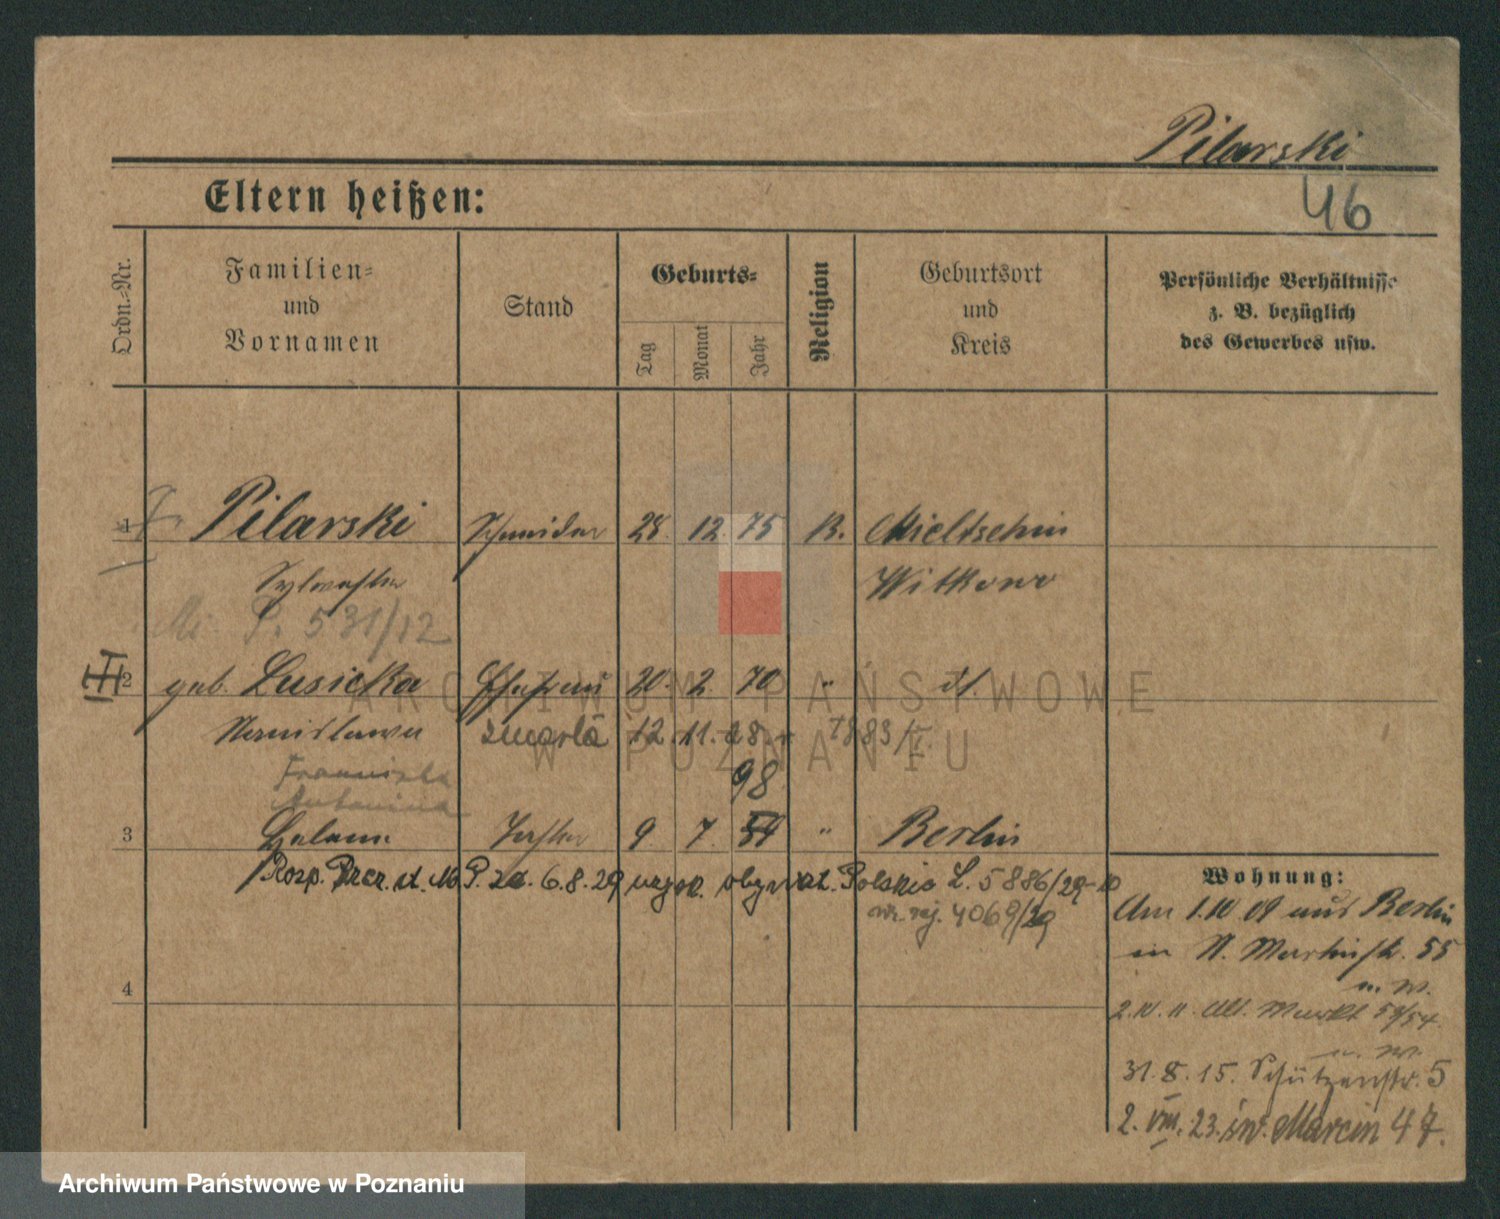 Pilarski
46
Eltern heißen:
Ordn.-Nr.
Familien-
und
Vornamen
Stand
Geburts-
Tag
Monat
Jahr
Religion
Geburtsort
und
Kreis
Persönliche Verhältnisse
z. B. bezüglich
des Gewerbes usw.
1 Pilarski Schneider 28. 12. 75 K. Mieltschin
Sylvester Witkowo
P. 531/12
2 geb. Lusicka Ehefrau 20. 2. 70 " dt.
Stanislawa zmarła 12.11.28 r 1883/I.
Franciszka
Antonina
98
3 Helene Tochter 9. 7. " Berlin
Rozp. Prez. d. M. P. za. 6.8.29 obywat. Polskie L. 5886/29-10
nr. rej. 4069/29
4
Wohnung:
Am 1.10 09 aus Berlin
in St. Martinstr. 55
u. w.
2.10.11 Alt. Markt 53/54.
u. w.
31.8.15. Schützenstr. 5
2. VIII. 23. św. Marcin 47.
ARCHIWUM PAŃSTWOWE
W POZNANIU
Archiwum Państwowe w Poznaniu